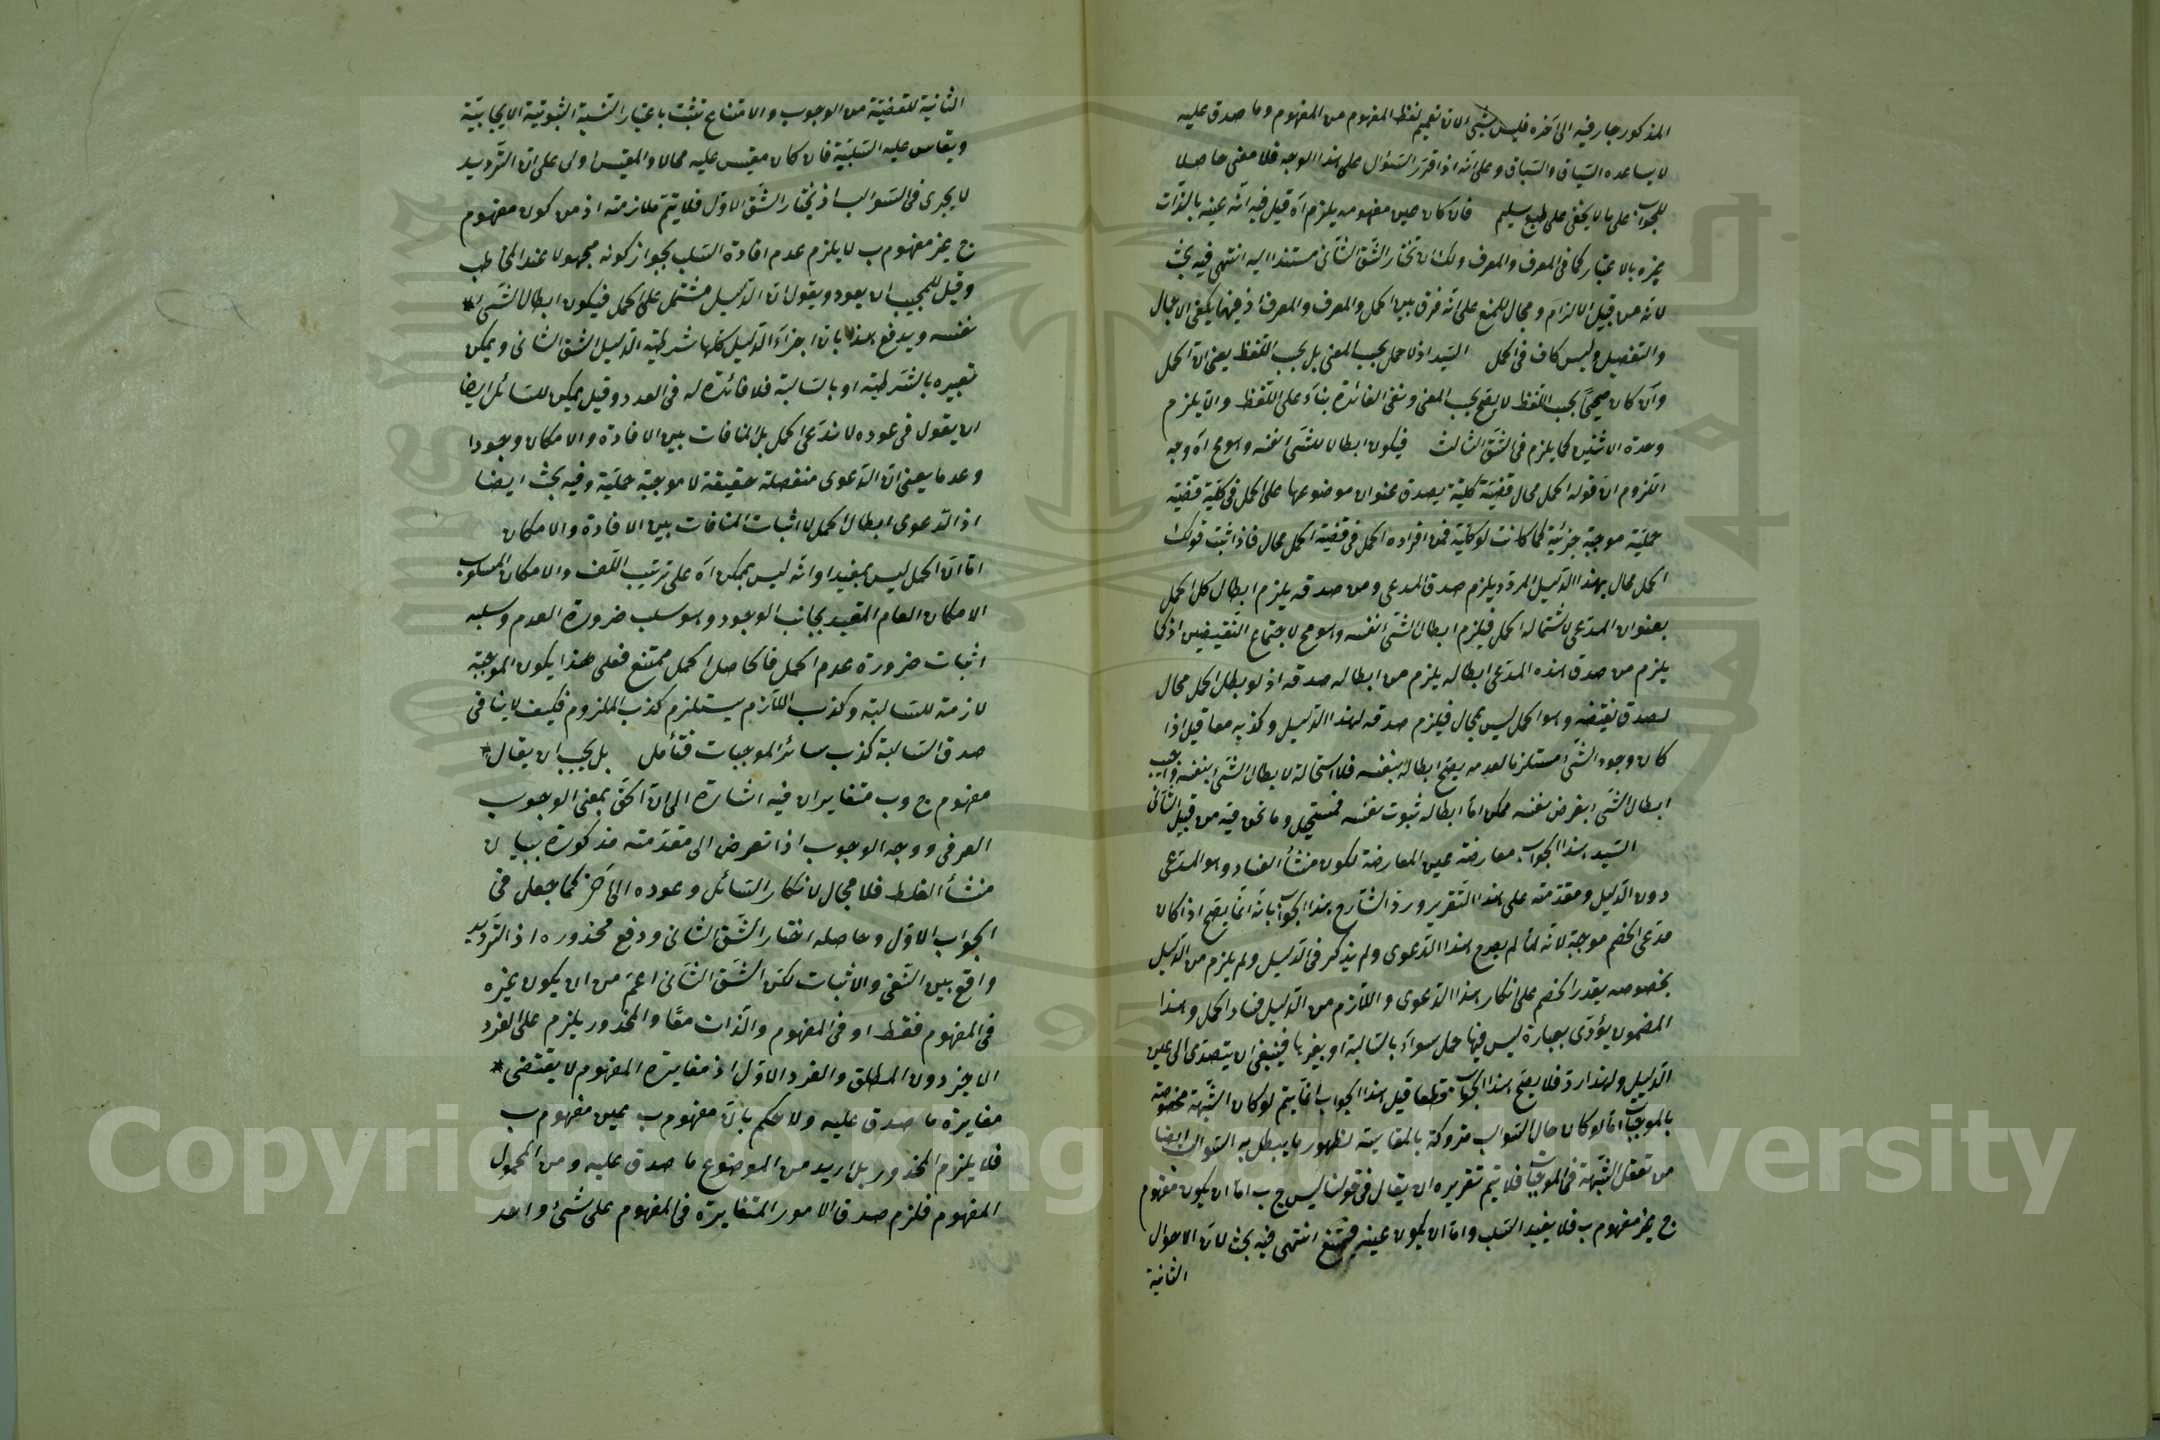 المذكور جار فيه الى آخره فليس بشئ الان تعميم لفظ المفهوم من المفهوم وما صدق عليه
لا يساعده السياق والسباق وعلى انه اذا قرر السؤال على هذا الوجه فلا معنى حاصلا
للجواب على ما لا يخفى على طبع سليم فان كان عين مفهومه يلزم آه قيل فيه انه عينه بالذات
غيره بالاعتبار كما فى المعرف والمعرف ولك ان تختار الشق الثانى مستندا اليه انتهى فيه بحث
لانه من قبيل الالزام ومجال للمنع على انه فرق بين الحمل والمعرف والمعرف اذ فيهما يكفى الاجمال
والتفصيل وليس كاف فى الحمل السيد اذ لا حمل بحسب المعنى بل بحسب اللفظ يعنى ان الحمل
وان كان صحيحا بحسب اللفظ لا يصح بحسب المعنى ونفى الفائدة بناء على اللفظ والا يلزم
وحدة الاثنين كما يلزم فى الشق الثالث فيكون ابطالا للشئ نفسه وهو مح آه وجه
اللزوم ان قوله الحمل محال قضية كلية يصدق عنوان موضوعها على الحمل فى كلية قضية
حملية موجبة جزئية كما كانت لو كلية فمن افراده الحمل فى قضية الحمل محال فاذا ثبت قولك
الحمل محال بهذا الدليل المردد يلزم صدق المدعى ومن صدقه يلزم ابطال كل الحمل
بعنوان المدعى لاشتماله الحمل فيلزم ابطال الشئ نفسه وهو مح لاجتماع النقيضين اذ كما
يلزم من صدق هذه المدعى ابطاله يلزم من ابطاله صدقه اذ لو بطل الحمل محال
لصدق نقيضه وهو الحمل ليس بمحال فيلزم صدقه لهذا الدليل وكذبه معا قيل اذا
كان وجود الشئ مستلزما لعدمه يصح ابطاله بنفسه فلا استحالة لابطال الشئ بنفسه واجيب
ابطال الشئ بفرض نفسه ممكن اما ابطاله ثبوت نفسه فمستحيل وما نحن فيه من قبيل الثانى
السيد هذا الجواب معارضة عين المعارضة لكون منشأ الفساد وهو المدعى
دون الدليل ومقدمته على هذا التقرير ورد الشارح هذا الجواب بانه انما يصح اذا كان
مدعى الخصم موجبة لانه لما لم يصرح هذا الدعوى ولم يذكر فى الدليل ولم يلزم من الدليل
بخصوصه يقدر الخصم على انكار هذا الدعوى واللازم من الدليل فساد الحمل وهذا
المضمون يؤدى بعبارة ليس فيها حمل سواء بالسالبة او بغيرها فينبغى ان يتصدى الى عين
الدليل ولهذا رد فلا يصح هذا الجواب قطعا قيل هذا الجواب انما يتم لو كان الشبهة مخصوصة
بالموجبات اما لو كان حال السوالب متروكة بالمقايسة لظهور ما يبطل به السوالب ايضا
من تعقل الشبهة فى الموجبات فلا يتم تقريره ان يقال فى قولنا ليس ج ب اما ان يكون مفهوم
ج غير مفهوم ب فلا يفيد السلب واما ان يكون عينه فيمتنع انتهى فيه بحث لان الاحوال
الثانية
الثانية للقضية من الوجوب والامتناع تثبت باعتبار النسبة الثبوتية الايجابية
ويقاس عليه السلبية فان كان مقيس عليه محالا والمقيس اولى على ان الترديد
لا يجرى فى السوالب اذ يختار الشق الاول فلا يتم ملازمته اذ من كون مفهوم
ج غير مفهوم ب لا يلزم عدم افادة السلب لجواز كونه مجهولا عند المخاطب
وقيل للمجيب ان يعود ويقول ان الدليل مشتمل على الحمل فيكون ابطال الشئ ل
نفسه ويدفع هذا بان اجزاء الدليل كلها شرطية الدليل الشق الثانى ويمكن
تعبيره بالشرطية او بالسالبة فلا فائدة له فى العدد وقيل يمكن للسائل ايضا
ان يقول فى عوده لا ندعى الحمل بل المنافات بين الافادة والامكان وجودا
وعدما يعنى ان الدعوى منفصلة حقيقة لا موجبة حملية وفيه بحث ايضا
اذ الدعوى ابطال الحمل لا اثبات المنافات بين الافادة والامكان
اما ان الحمل ليس بمفيد او انه ليس بممكن آه على ترتيب اللف والامكان المسلوب
الامكان العام المقيد بجانب الوجود وهو سلب ضرورة العدم وسلبه
اثبات ضرورة عدم الحمل فالحاصل الحمل ممتنع فعلى هذا يكون الموجبة
لازمة للسالبة وكذب اللازم يستلزم كذب الملزوم فكيف لا ينافى
صدق السالبة كذب سائر الموجبات فتأمل بل يجب ان يقال
مفهوم ج وب متغايران فيه اشارة الى ان الحق بمعنى الوجوب
العرفى ووجه الوجوب اذا تعرض الى مقدمة مذكورة ببيان
منشأ الغلط فلا مجال لانكار السائل وعوده الى آخر كما جعل فى
الجواب الاول وحاصله اختار الشق الثانى ودفع محذوره اذ الترديد
واقع بين النفى والاثبات لكن الشق الثانى اعم من ان يكون غيره
فى المفهوم فقط او فى المفهوم والذات معا والمحذور يلزم على الفرد
الاخير دون المطلق والفرد الاول اذ مغايرة المفهوم لا يقتضى
مغايرة ما صدق عليه ولا حكم بان مفهوم ب عين مفهوم ب
فلا يلزم المحذور بل اريد من الموضوع ما صدق عليه ومن المحمول
المفهوم فلزم صدق الامور المتغايرة فى المفهوم على شئ واحد